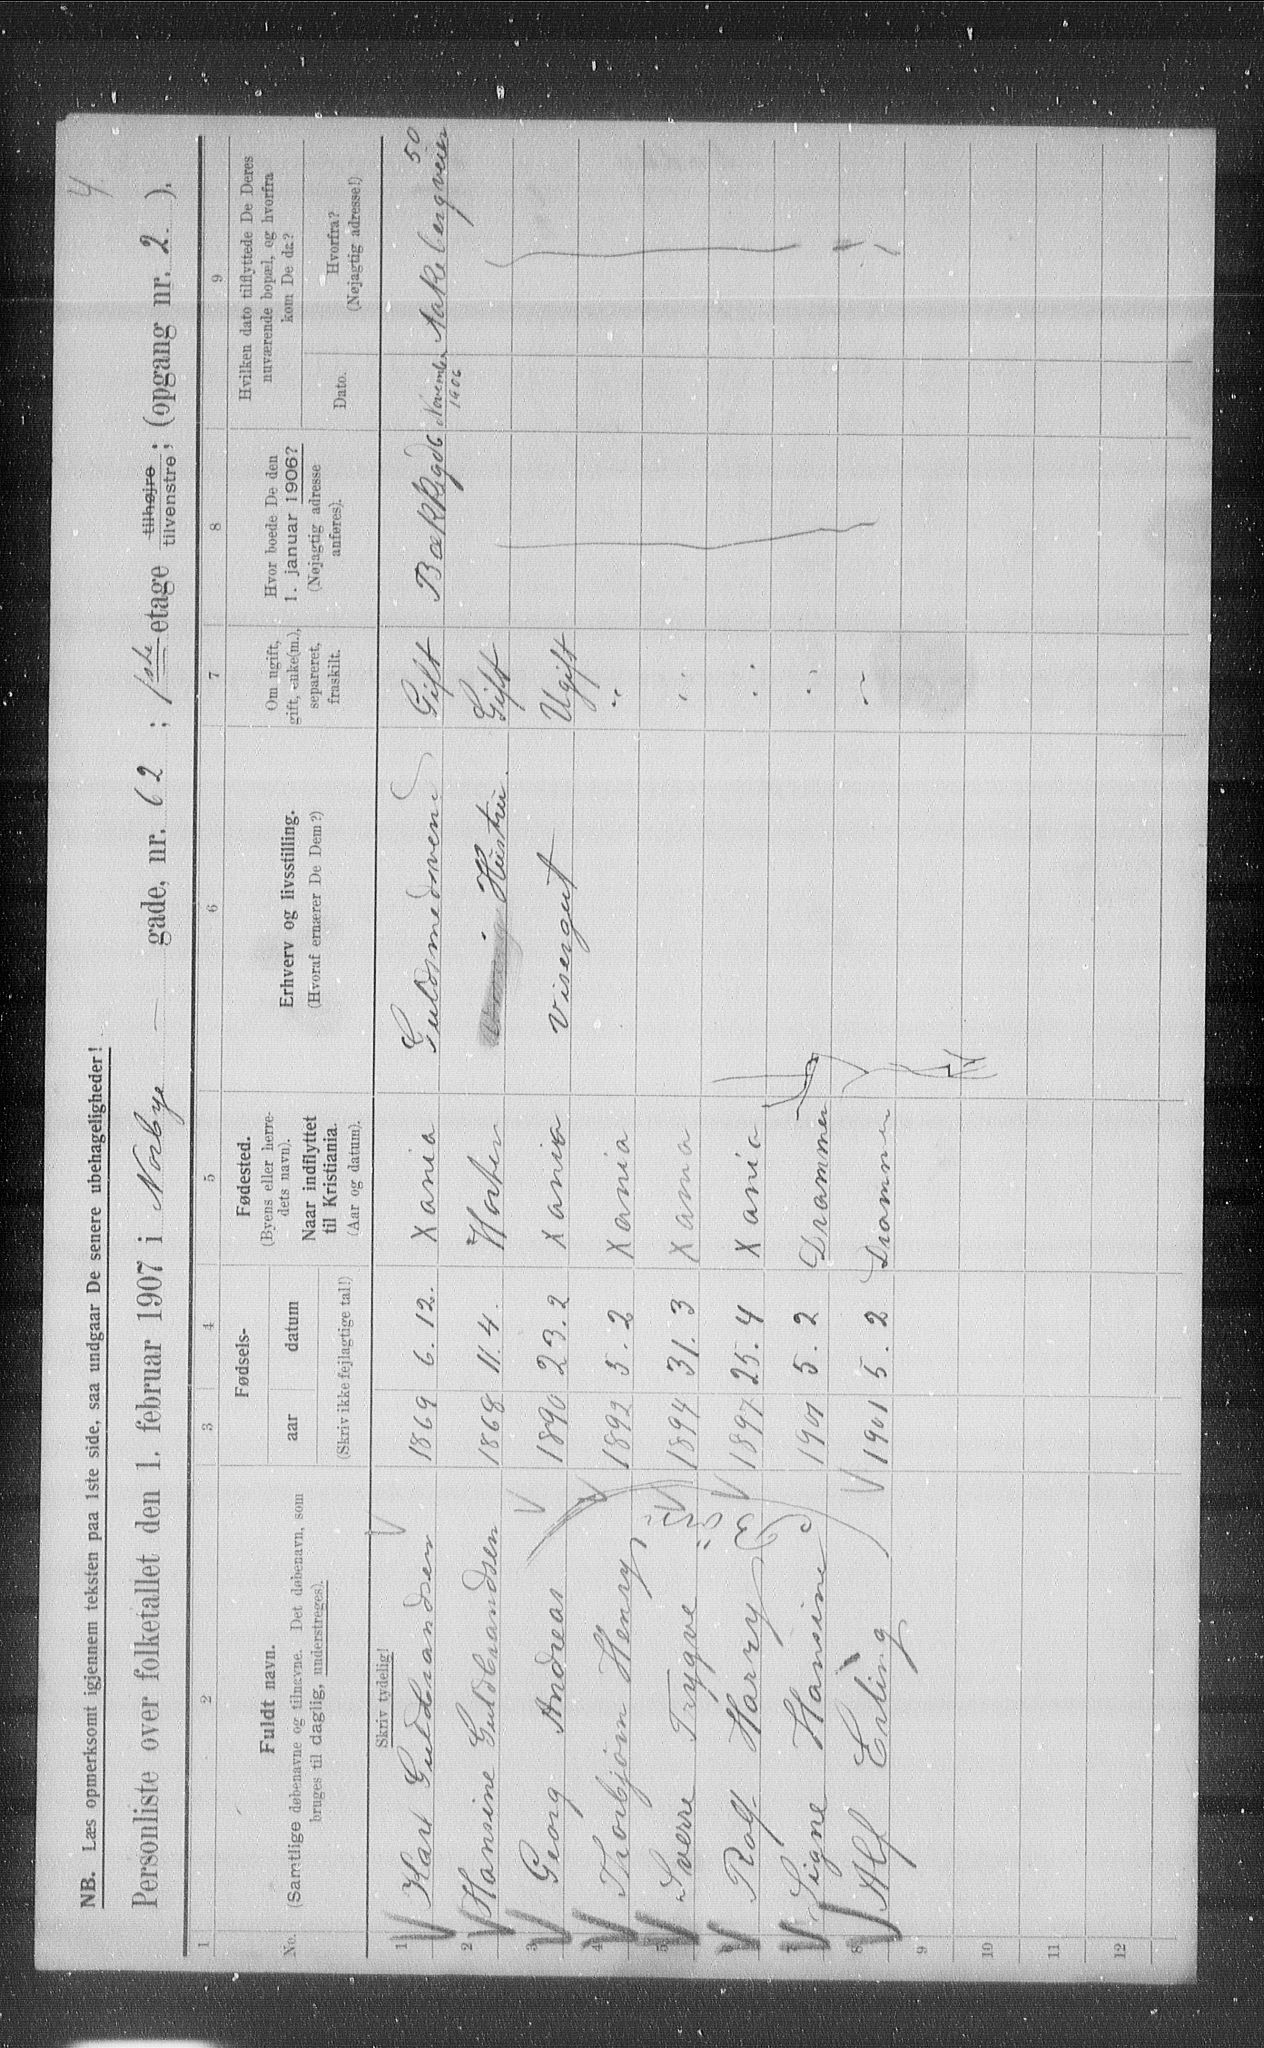 4
NB. Læs opmerksomt igjennem teksten paa 1ste side, saa undgaar De senere ubehageligheder!
Personliste over folketallet den 1. februar 1907 i Norbye gade, nr. 62; 1ste etage tilhøjre tilvenstre; (opgang nr. 2).
1 2 3 4 5 6 7 8 9
No.
Fuldt navn.
(Samtlige døbenavne og tilnavne. Det døbenavn, som
bruges til daglig, understreges).
Fødsels-
aar datum
(Skriv ikke fejlagtige tal!)
Fødested.
(Byens eller herre-
dets navn).
Naar indflyttet
til Kristiania.
(Aar og datum).
Erhverv og livsstilling.
(Hvoraf ernærer De Dem?)
Om ugift,
gift, enke(m.),
separeret,
fraskilt.
Hvor boede De den
1. januar 1906?
(Nøjagtig adresse
anføres).
Hvilken dato tilflyttede De Deres
nuværende bopæl, og hvorfra
kom De da?
Dato.
Hvorfra?
(Nøjagtig adresse!)
Skriv tydelig!
1 Karl Guldbrandsen 1869 6. 12. Xania Guldsmedsvend Gift Bakkegd 6 November 1906 Aakebergveien 50
2 Hansine Guldbrandsen 1868 11. 4. Horten Hustru Gift
3 Georg Andreas 1890 23. 2 Xania Visergut Ugift
4 Thorbjørn Henry 1892 5. 2 Xania "
5 Sverre Trygve 1894 31. 3 Xania "
6 Rolf Harry 1897 25. 4 Xania "
7 Signe Hansine 1901 5. 2 Drammen "
8 Alf Erling 1901 5. 2 Drammen "
9
10
11
12